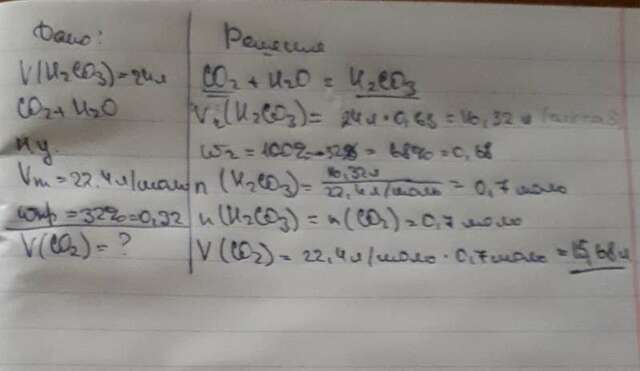 Дано:
V(H2CO3)=24л
CO2+H2O
н.у.
Vm=22,4л/моль
wпр=32%=0,32
V(CO2)=?
Решение
CO2+H2O=H2CO3
V2(H2CO3)=24л·0,68=16,32л
w2=100%-32%=68%=0,68
n(H2CO3)=16,32л/22,4л/моль=0,7моль
n(H2CO3)=n(CO2)=0,7моль
V(CO2)=22,4л/моль·0,7моль=15,68л